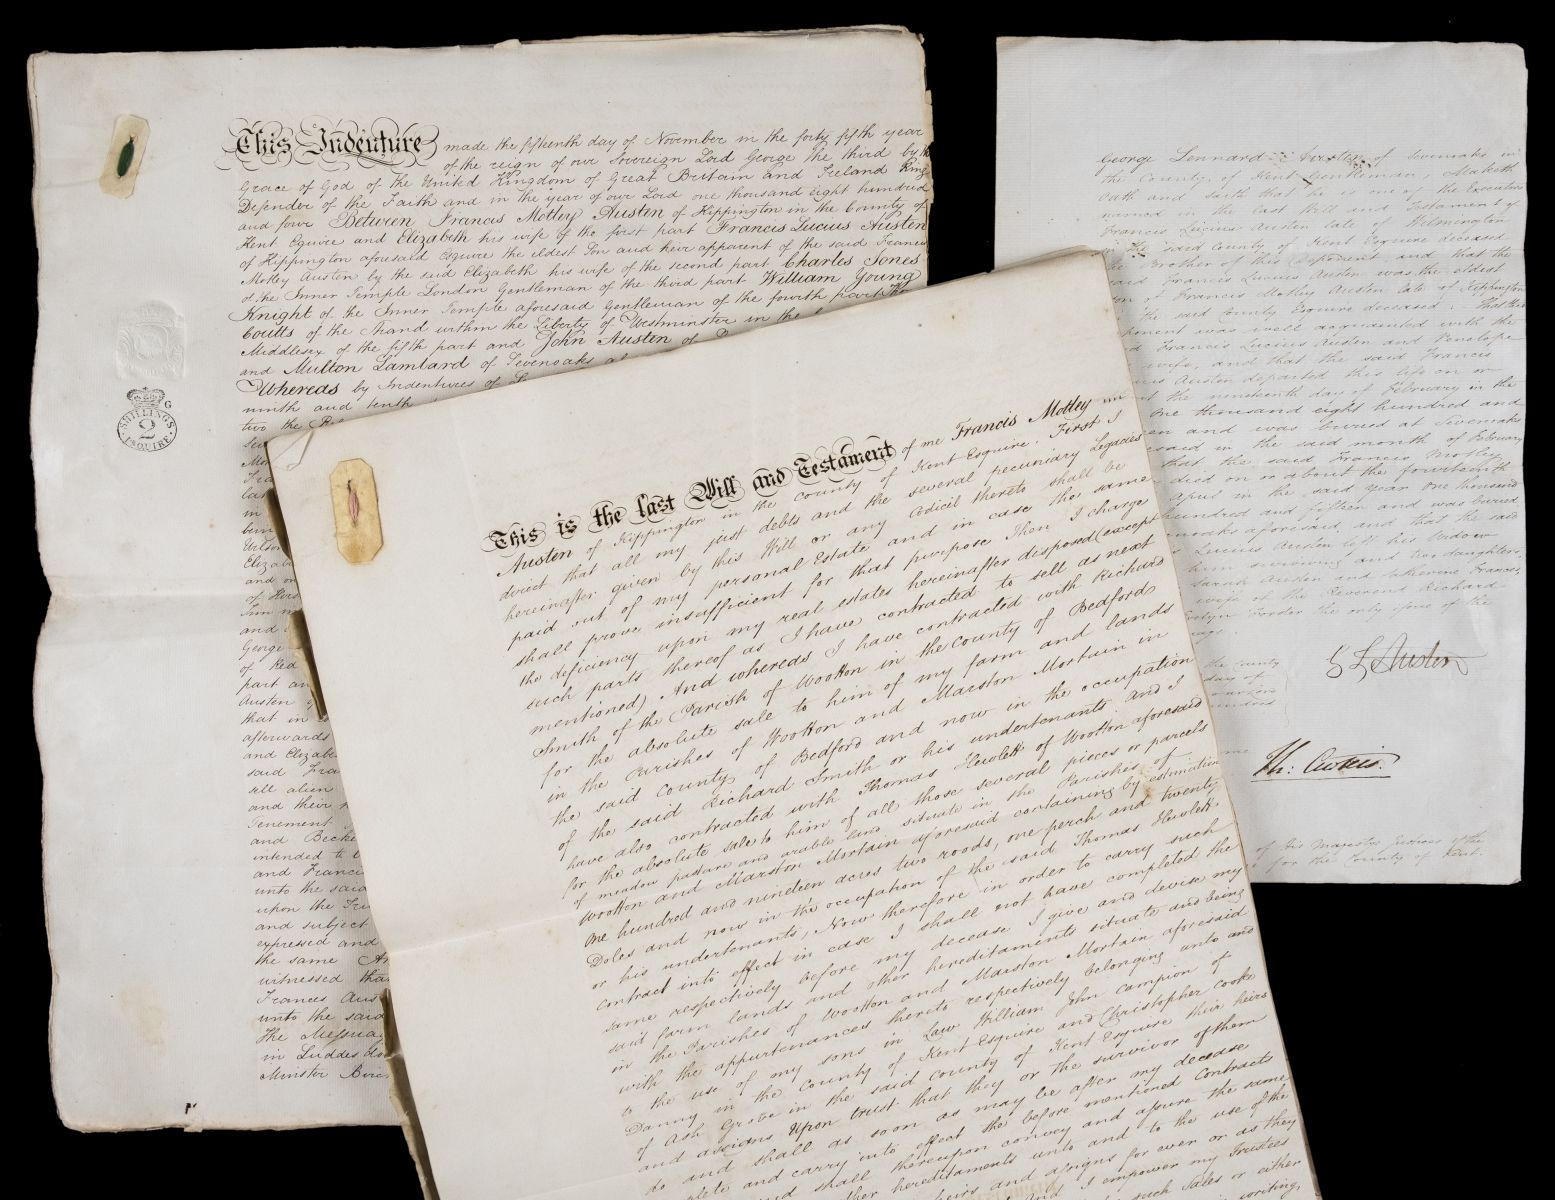 This Indenture made the fifteenth day of November in the forty fifth year
of the reign of our Sovereign Lord George the third by the
Grace of God of the United Kingdom of Great Britain and Ireland King
Defender of the Faith and in the year of our Lord one thousand eight hundred
and four Between Francis Motley Austen of Kippington in the County of
Kent Esquire and Elizabeth his wife of the first part Francis Lucius Austen
of Kippington aforesaid Esquire the eldest Son and heir apparent of the said Francis
Motley Austen by the said Elizabeth his wife of the second part Charles Jones
of the Inner Temple London Gentleman of the third part William Young
Knight of the Inner Temple aforesaid Gentleman of the fourth part
Coutts of the Strand within the Liberty of Westminster in the
Middlesex of the fifth part and John Austen of
and Multon Lambard of Sevenoaks
Whereas by Indentures of
ninth and tenth
two the
in
and
of
and
George
of Red
part an
Austen
that in
afterwards
and Elizabe
said Fra
all alien
and their
Tenement
and Becke
intended to
and Franci
unto the said
upon the Tru
and subject
expressed and
the same
witnessed tha
Frances Aus
unto the said
The Messua
in Luddesdo
Minster
G
SHILLINGS
2
ESQUIRE
This is the last Will and Testament of me Francis Motley
Austen of Kippington in the county of Kent Esquire. First I
direct that all my just debts and the several pecuniary Legacies
hereinafter given by this Will or any Codicil thereto shall be
paid out of my personal Estate and in case the same
shall prove insufficient for that purpose Then I charge
the deficiency upon my real estates hereinafter disposed (except
such parts thereof as I have contracted to sell as next
mentioned) And whereas I have contracted with Richard
Smith of the Parish of Wootton in the County of Bedford
for the absolute sale to him of my farm and lands
in the Parishes of Wootton and Marston Mortain in
the said County of Bedford and now in the occupation
of the said Richard Smith or his undertenants and I
have also contracted with Thomas Hewlett of Wootton aforesaid
for the absolute sale to him of all those several pieces or parcels
of meadow pasture and arable land situate in the Parishes of
Wootton and Marston Mortain aforesaid containing by estimation
one hundred and nineteen acres two roods, one perch and twenty
Doles and now in the occupation of the said Thomas Hewlett
or his undertenants, Now therefore in order to carry such
contract into effect in case I shall not have completed the
same respectively before my decease I give and devise my
said farm lands and other hereditaments situate and being
in the Parishes of Wootton and Marston Mortain aforesaid
with the appurtenances thereto respectively belonging unto and
to the use of my sons in Law William John Campion of
Danny in the County of Kent Esquire and Christopher Cooke
of Ash Grove in the said county of Kent Esquire their heirs
and assigns Upon trust that they or the survivor of them
do and shall as soon as may be after my decease
plete and carry into effect the before mentioned Contracts
and shall thereupon convey and assure the same
hereditaments unto and to the use of the
heirs and assigns for ever or as they
And I empower my Trustees
such Sales or either
writing,
George Lennard Austen of Sevenoaks in
the County of Kent Gentleman, Maketh
Oath and saith that he is one of the Executors
named in the last Will and Testament of
Francis Lucius Austen late of Wilmington
in the said County of Kent Esquire deceased
the Brother of this Deponent and that the
said Francis Lucius Austen was the eldest
son of Francis Motley Austen late of Kippington
in the said County Esquire deceased. That
ponent was well acquainted with the
d Francis Lucius Austen and Penelope
wife, and that the said Francis
ius Austen departed this life on or
t the nineteenth day of February in the
One thousand eight hundred and
en and was buried at Sevenoaks
esaid in the said month of February
that the said Francis Motley
died on or about the fourteenth
April in the said year One thousand
hundred and fifteen and was buried
noaks aforesaid and that the said
Lucius Austen left his widow
him surviving and two daughters
Sarah Austen and Catherine Frances,
wife of the Reverend Richard
the only
G L Austen
the County
day of
me
of His Majestys Justices of the
for the County of Kent.